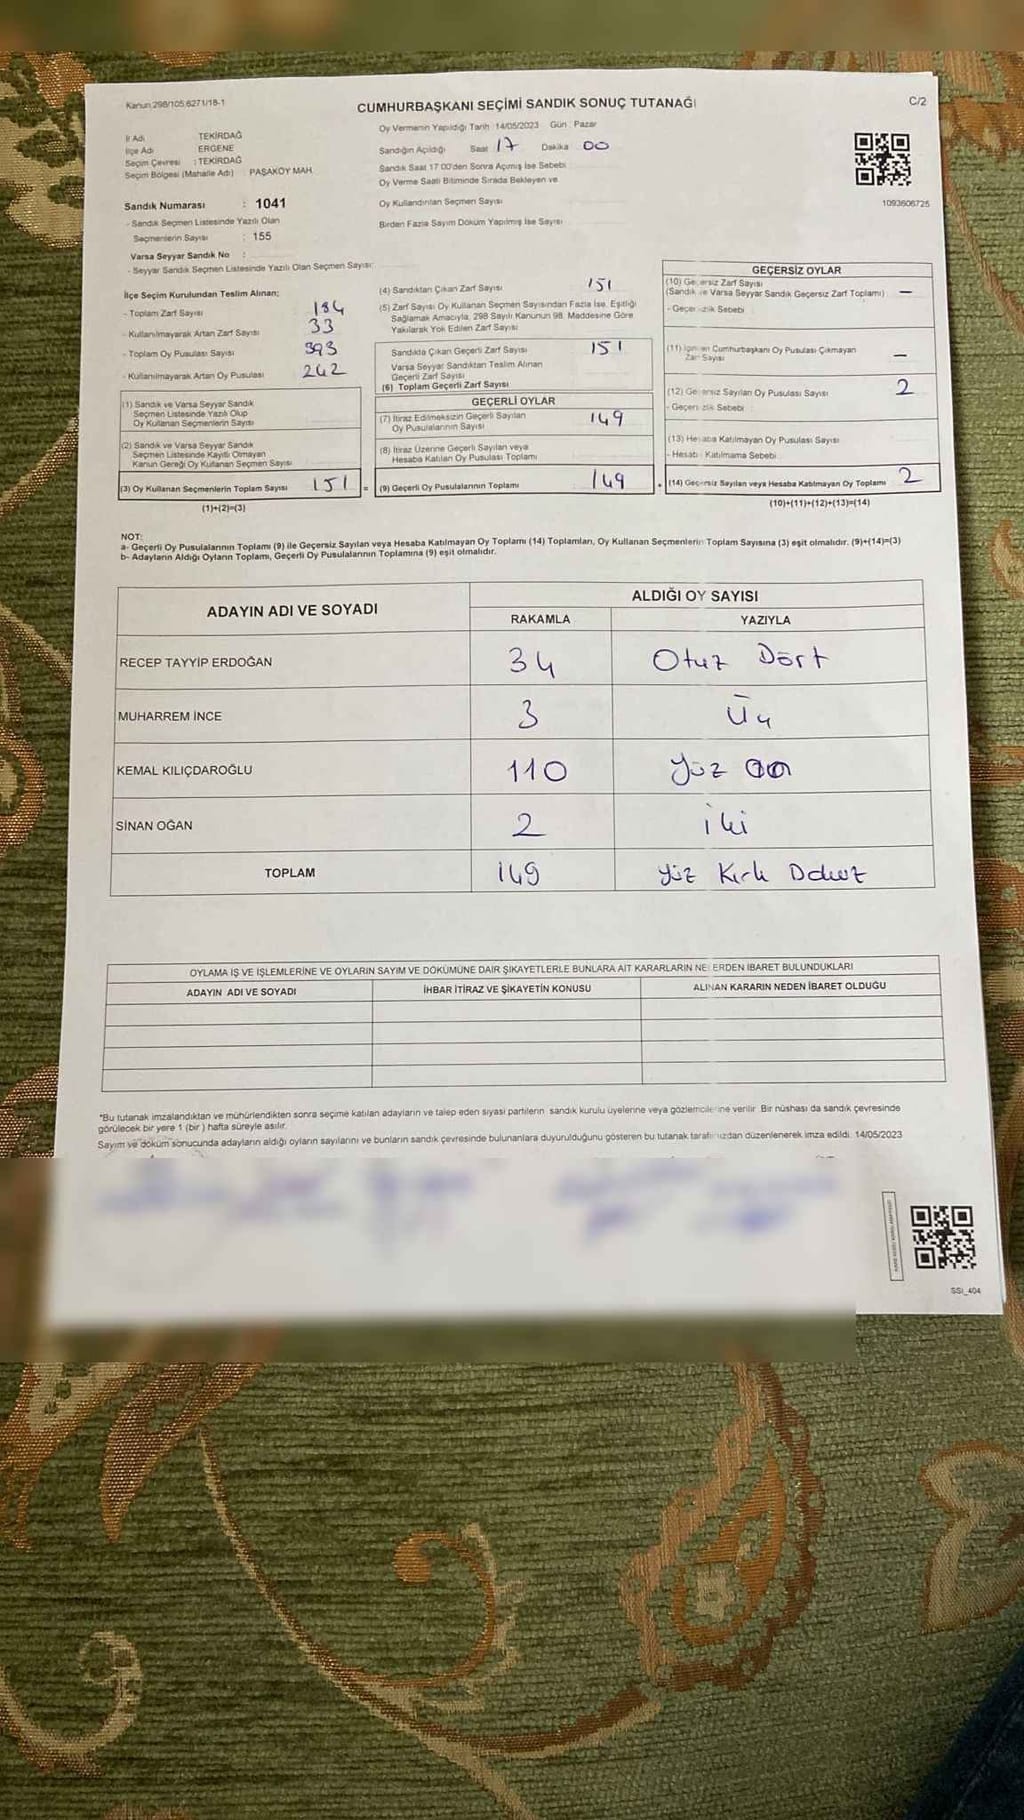 Kanun 298/105,6271/18-1
CUMHURBAŞKANI SEÇİMİ SANDIK SONUÇ TUTANAĞI
C/2
İl Adı TEKİRDAĞ
İlçe Adı ERGENE
Seçim Çevresi : TEKİRDAĞ
Seçim Bölgesi (Mahalle Adı) PAŞAKÖY MAH.
Oy Vermenin Yapıldığı Tarih 14/05/2023 Gün Pazar
Sandığın Açıldığı Saat 17 Dakika 00
Sandık Saat 17 00'den Sonra Açımış İse Sebebi
Oy Verme Saati Bitiminde Sırada Bekleyen ve
Oy Kullandırılan Seçmen Sayısı
Birden Fazla Sayım Döküm Yapılmış İse Sayısı
1093606725
Sandık Numarası : 1041
- Sandık Seçmen Listesinde Yazılı Olan
Seçmenlerin Sayısı : 155
Varsa Seyyar Sandık No :
- Seyyar Sandık Seçmen Listesinde Yazılı Olan Seçmen Sayısı:
İlçe Seçim Kurulundan Teslim Alınan;
- Toplam Zarf Sayısı 184
- Kullanılmayarak Artan Zarf Sayısı 33
- Toplam Oy Pusulası Sayısı 393
- Kullanılmayarak Artan Oy Pusulası 242
(1) Sandık ve Varsa Seyyar Sandık
Seçmen Listesinde Yazılı Olup
Oy Kullanan Seçmenlerin Sayısı
(2) Sandık ve Varsa Seyyar Sandık
Seçmen Listesinde Kayıtlı Olmayan
Kanun Gereği Oy Kullanan Seçmen Sayısı
(3) Oy Kullanan Seçmenlerin Toplam Sayısı 151 =
(1)+(2)=(3)
(4) Sandıktan Çıkan Zarf Sayısı 151
(5) Zarf Sayısı Oy Kullanan Seçmen Sayısından Fazla İse, Eşitliği
Sağlamak Amacıyla, 298 Sayılı Kanunun 98. Maddesine Göre
Yakılarak Yok Edilen Zarf Sayısı
Sandıkta Çıkan Geçerli Zarf Sayısı 151
Varsa Seyyar Sandıktan Teslim Alınan
Geçerli Zarf Sayısı
(6) Toplam Geçerli Zarf Sayısı
GEÇERLİ OYLAR
(7) İtiraz Edilmeksizin Geçerli Sayılan
Oy Pusulalarının Sayısı 149
(8) İtiraz Üzerine Geçerli Sayılan veya
Hesaba Katılan Oy Pusulası Toplamı
(9) Geçerli Oy Pusulalarının Toplamı 149
GEÇERSİZ OYLAR
(10) Geçersiz Zarf Sayısı
(Sandık ve Varsa Seyyar Sandık Geçersiz Zarf Toplamı) —
- Geçersizlik Sebebi
(11) İçinden Cumhurbaşkanı Oy Pusulası Çıkmayan
Zarf Sayısı —
(12) Geçersiz Sayılan Oy Pusulası Sayısı 2
- Geçersizlik Sebebi
(13) Hesaba Katılmayan Oy Pusulası Sayısı
- Hesaba Katılmama Sebebi
(14) Geçersiz Sayılan veya Hesaba Katılmayan Oy Toplamı 2
(10)+(11)+(12)+(13)=(14)
NOT:
a- Geçerli Oy Pusulalarının Toplamı (9) ile Geçersiz Sayılan veya Hesaba Katılmayan Oy Toplamı (14) Toplamları, Oy Kullanan Seçmenlerin Toplam Sayısına (3) eşit olmalıdır. (9)+(14)=(3)
b- Adayların Aldığı Oyların Toplamı, Geçerli Oy Pusulalarının Toplamına (9) eşit olmalıdır.
ADAYIN ADI VE SOYADI
ALDIĞI OY SAYISI
RAKAMLA YAZIYLA
RECEP TAYYİP ERDOĞAN 34 Otuz Dört
MUHARREM İNCE 3 Üç
KEMAL KILIÇDAROĞLU 110 Yüz On
SİNAN OĞAN 2 iki
TOPLAM 149 Yüz Kırk Dokuz
OYLAMA İŞ VE İŞLEMLERİNE VE OYLARIN SAYIM VE DÖKÜMÜNE DAİR ŞİKAYETLERLE BUNLARA AİT KARARLARIN NELERDEN İBARET BULUNDUKLARI
ADAYIN ADI VE SOYADI İHBAR İTİRAZ VE ŞİKAYETİN KONUSU ALINAN KARARIN NEDEN İBARET OLDUĞU
*Bu tutanak imzalandıktan ve mühürlendikten sonra seçime katılan adayların ve talep eden siyasi partilerin sandık kurulu üyelerine veya gözlemcilerine verilir. Bir nüshası da sandık çevresinde
görülecek bir yere 1 (bir ) hafta süreyle asılır.
Sayım ve döküm sonucunda adayların aldığı oyların sayılarını ve bunların sandık çevresinde bulunanlara duyurulduğunu gösteren bu tutanak tarafımızdan düzenlenerek imza edildi. 14/05/2023
SSI_404